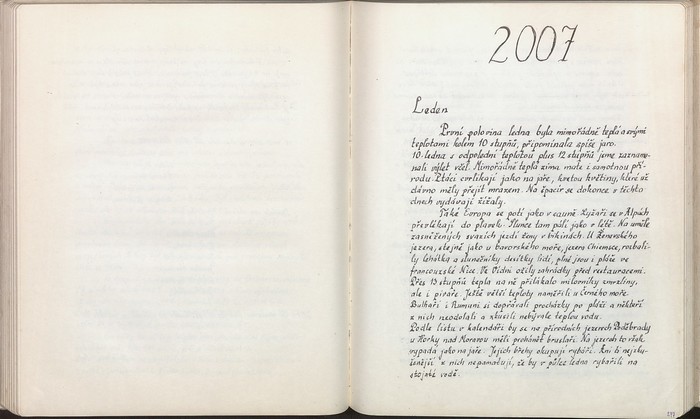 2007
Leden
První polovina ledna byla mimořádně teplá a svými
teplotami kolem 10 stupňů, připomínala spíše jaro.
10. ledna s odpolední teplotou plus 12 stupňů jsme zaznamenali
výlet včel. Mimořádně teplá zima mate i samotnou pří-
rodu. Ptáci cvrlikají jako na jaře, kvetou květiny, které už
dávno měly přejít mrazem. Na špacír se dokonce v těchto
dnech vydávají žížaly.
Také Evropa se potí jako v sauně. Lyžaři se v Alpách
převlékají do plavek. Slunce tam pálí jako v létě. Na uměle
zasněžených svazích jezdí ženy v bikinách. U Ženevského
jezera, stejně jako u bavorského moře, jezera Chiemsee, rozbali-
ly lehátka a slunečníky desítky lidí, plné jsou i pláže ve
francouzské Nice. Ve Vídni ožily zahrádky před restauracemi.
Přes 13 stupňů tepla na ně přilákalo milovníky zmrzliny,
ale i pivaře. Ještě větší teploty naměřili u Černého moře.
Bulhaři i Rumuni si dopřávali procházky po pláži a někteří
z nich neodolali a zkusili nebývale teplou vodu.
Podle listu v kalendáři by se na přírodních jezerech Poděbrady
u Horky nad Moravou měli prohánět bruslaři. Na jezeech to však
vypadá jako na jaře. Jejich břehy okupují rybáři. Ani ti nejsku-
šenější z nich nepamatují, že by v půlce ledna rybařili na
stojaté vodě.